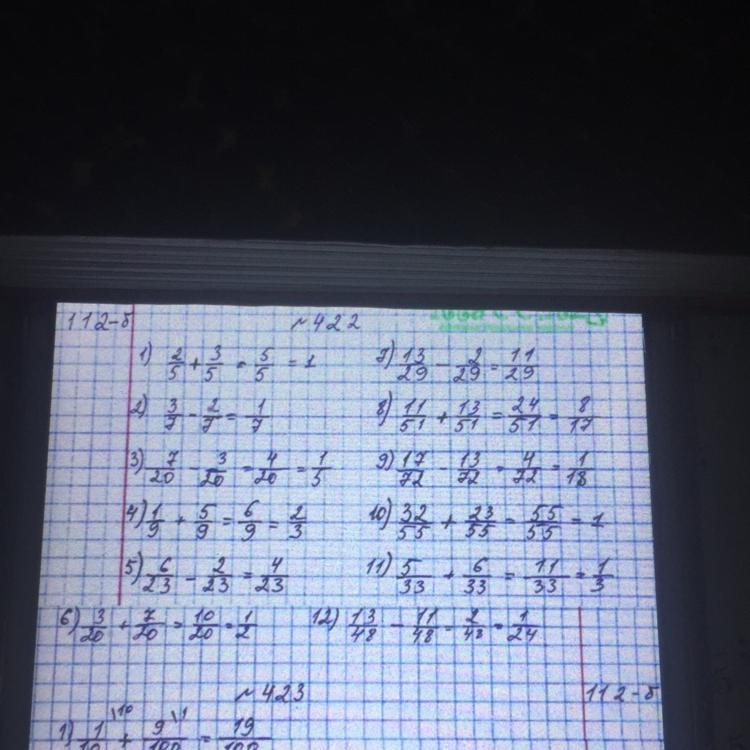 112-б №422
1) 2/5 + 3/5 = 5/5 = 1 7) 13/29 - 2/29 = 11/29
2) 3/7 - 2/7 = 1/7 8) 11/51 + 13/51 = 24/51 = 8/17
3) 7/20 - 3/20 = 4/20 = 1/5 9) 17/72 - 13/72 = 4/72 = 1/18
4) 1/9 + 5/9 = 6/9 = 2/3 10) 32/55 + 23/55 = 55/55 = 1
5) 6/23 - 2/23 = 4/23 11) 5/33 + 6/33 = 11/33 = 1/3
6) 3/20 + 7/20 = 10/20 = 1/2 12) 13/48 - 11/48 = 2/48 = 1/24
№423 112-б
1) 1/10 \10 + 9/100 \1 = 19/100